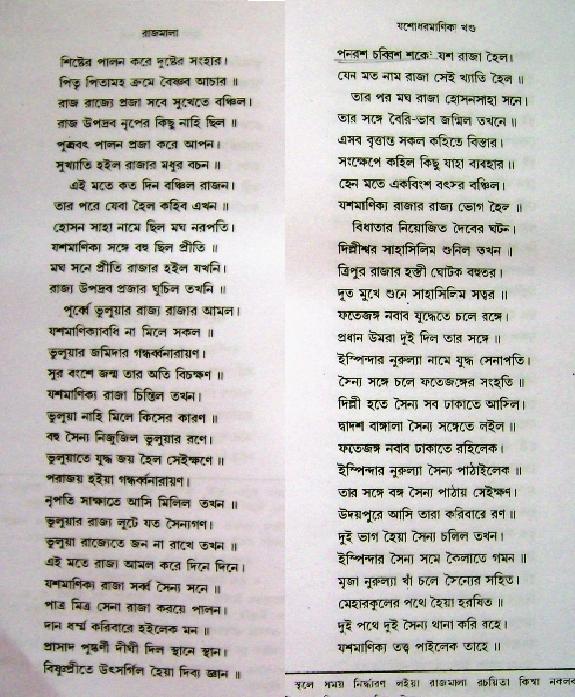 রাজমালা
শিষ্টের পালন করে দুষ্টের সংহার।
পিতৃ পিতামহ ক্রমে বৈষ্ণব আচার ॥
রাজ রাজ্যে প্রজা সবে সুখেতে বঞ্চিল।
রাজ উপদ্রব নৃপের কিছু নাহি ছিল ॥
পুত্রবৎ পালন প্রজা করে আপন।
সুখ্যাতি হইল রাজার মধুর বচন ॥
এই মতে কত দিন বঞ্চিল রাজন।
তার পরে যেবা হৈল কহিব এখন ॥
হোসন সাহা নামে ছিল মঘ নরপতি।
যশমাণিক্য সঙ্গে বহু ছিল প্রীতি ॥
মঘ সনে প্রীতি রাজার হইল যখনি।
রাজ্য উপদ্রব প্রজার ঘুচিল তখনি ॥
পূর্ব্বে ভুলুয়ার রাজ্য রাজার আমল।
যশমাণিক্যাবধি না মিলে সকল ॥
ভুলুয়ার জমিদার গন্ধর্ব্বনারায়ণ।
সুর বংশে জন্ম তার অতি বিচক্ষণ ॥
যশমাণিক্য রাজা চিন্তিল তখন।
ভুলুয়া নাহি মিলে কিসের কারণ ॥
বহু সৈন্য নিজুজিল ভুলুয়ার রণে।
ভুলুয়াতে যুদ্ধ জয় হৈল সেইক্ষণে ॥
পরাজয় হইয়া গন্ধর্ব্বনারায়ণ।
নৃপতি সাক্ষাতে আসি মিলিল তখন ॥
ভুলুয়ার রাজ্য লুটে যত সৈন্যগণ।
ভুলুয়া রাজ্যেতে জন না রাখে তখন ॥
এই মতে রাজা আমল করে দিনে দিনে।
যশমাণিক্য রাজা সর্ব্ব সৈন্য সনে ॥
পাত্র মিত্র সেনা রাজা করয়ে পালন।
দান ধর্ম্ম করিবারে হইলেক মন ॥
প্রাসাদ পুষ্কর্ণী দীঘী দিল স্থানে স্থান।
বিষ্ণুপ্রীতে উৎসর্গিল হৈয়া দিব্য জ্ঞান ॥
যশোধরমাণিক্য খণ্ড
পনরশ চব্বিশ শকে যশ রাজা হৈল।
যেন মত নাম রাজা সেই খ্যাতি হৈল ॥
তার পর মঘ রাজা হোসনসাহা সনে।
তার সঙ্গে বৈরি-ভাব জন্মিল তখনে ॥
এসব বৃত্তান্ত সকল কহিতে বিস্তার।
সংক্ষেপে কহিল কিছু যাহা ব্যবহার ॥
হেন মতে একবিংশ বৎসর বঞ্চিল।
যশমাণিক্য রাজার রাজ্য ভোগ হৈল ॥
বিধাতার নিয়োজিত দৈবের ঘটন।
দিল্লীশ্বর সাহাসিলিম শুনিল তখন ॥
ত্রিপুর রাজার হস্তী ঘোটক বহুতর।
দূত মুখে শুনে সাহাসিলিম সত্বর ॥
ফতেজঙ্গ নবাব যুদ্ধেতে চলে রঙ্গে।
প্রধান উমরা দুই দিল তার সঙ্গে ॥
ইস্পিন্দার নুরুল্যা নামে যুদ্ধ সেনাপতি।
সৈন্য সঙ্গে চলে ফতেজঙ্গের সংহতি ॥
দিল্লী হতে সৈন্য সব ঢাকাতে আসিল।
দ্বাদশ বাঙ্গালা সৈন্য সঙ্গেতে লইল ॥
ফতেজঙ্গ নবাব ঢাকাতে রহিলেক।
ইস্পিন্দার নুরুল্যা সৈন্য পাঠাইলেক ॥
তার সঙ্গে বঙ্গ সৈন্য পাঠায় সেইক্ষণ।
উদয়পুরে আসি তারা করিবারে রণ ॥
দুই ভাগ হৈয়া সৈন্য চলিল তখন।
ইস্পিন্দার সৈন্য সমে কৈলাতে গমন ॥
মৃজা নুরুল্যা খাঁ চলে সৈন্যের সহিত।
মেহারকুলের পথে হৈয়া হরষিত ॥
দুই পথে দুই সৈন্য থানা করি রহে।
যশমাণিক্য তত্ত্ব পাইলেক তাহে ॥
স্থলে সময় নির্দ্ধারণ লইয়া রাজমালা রচয়িতা কিম্বা